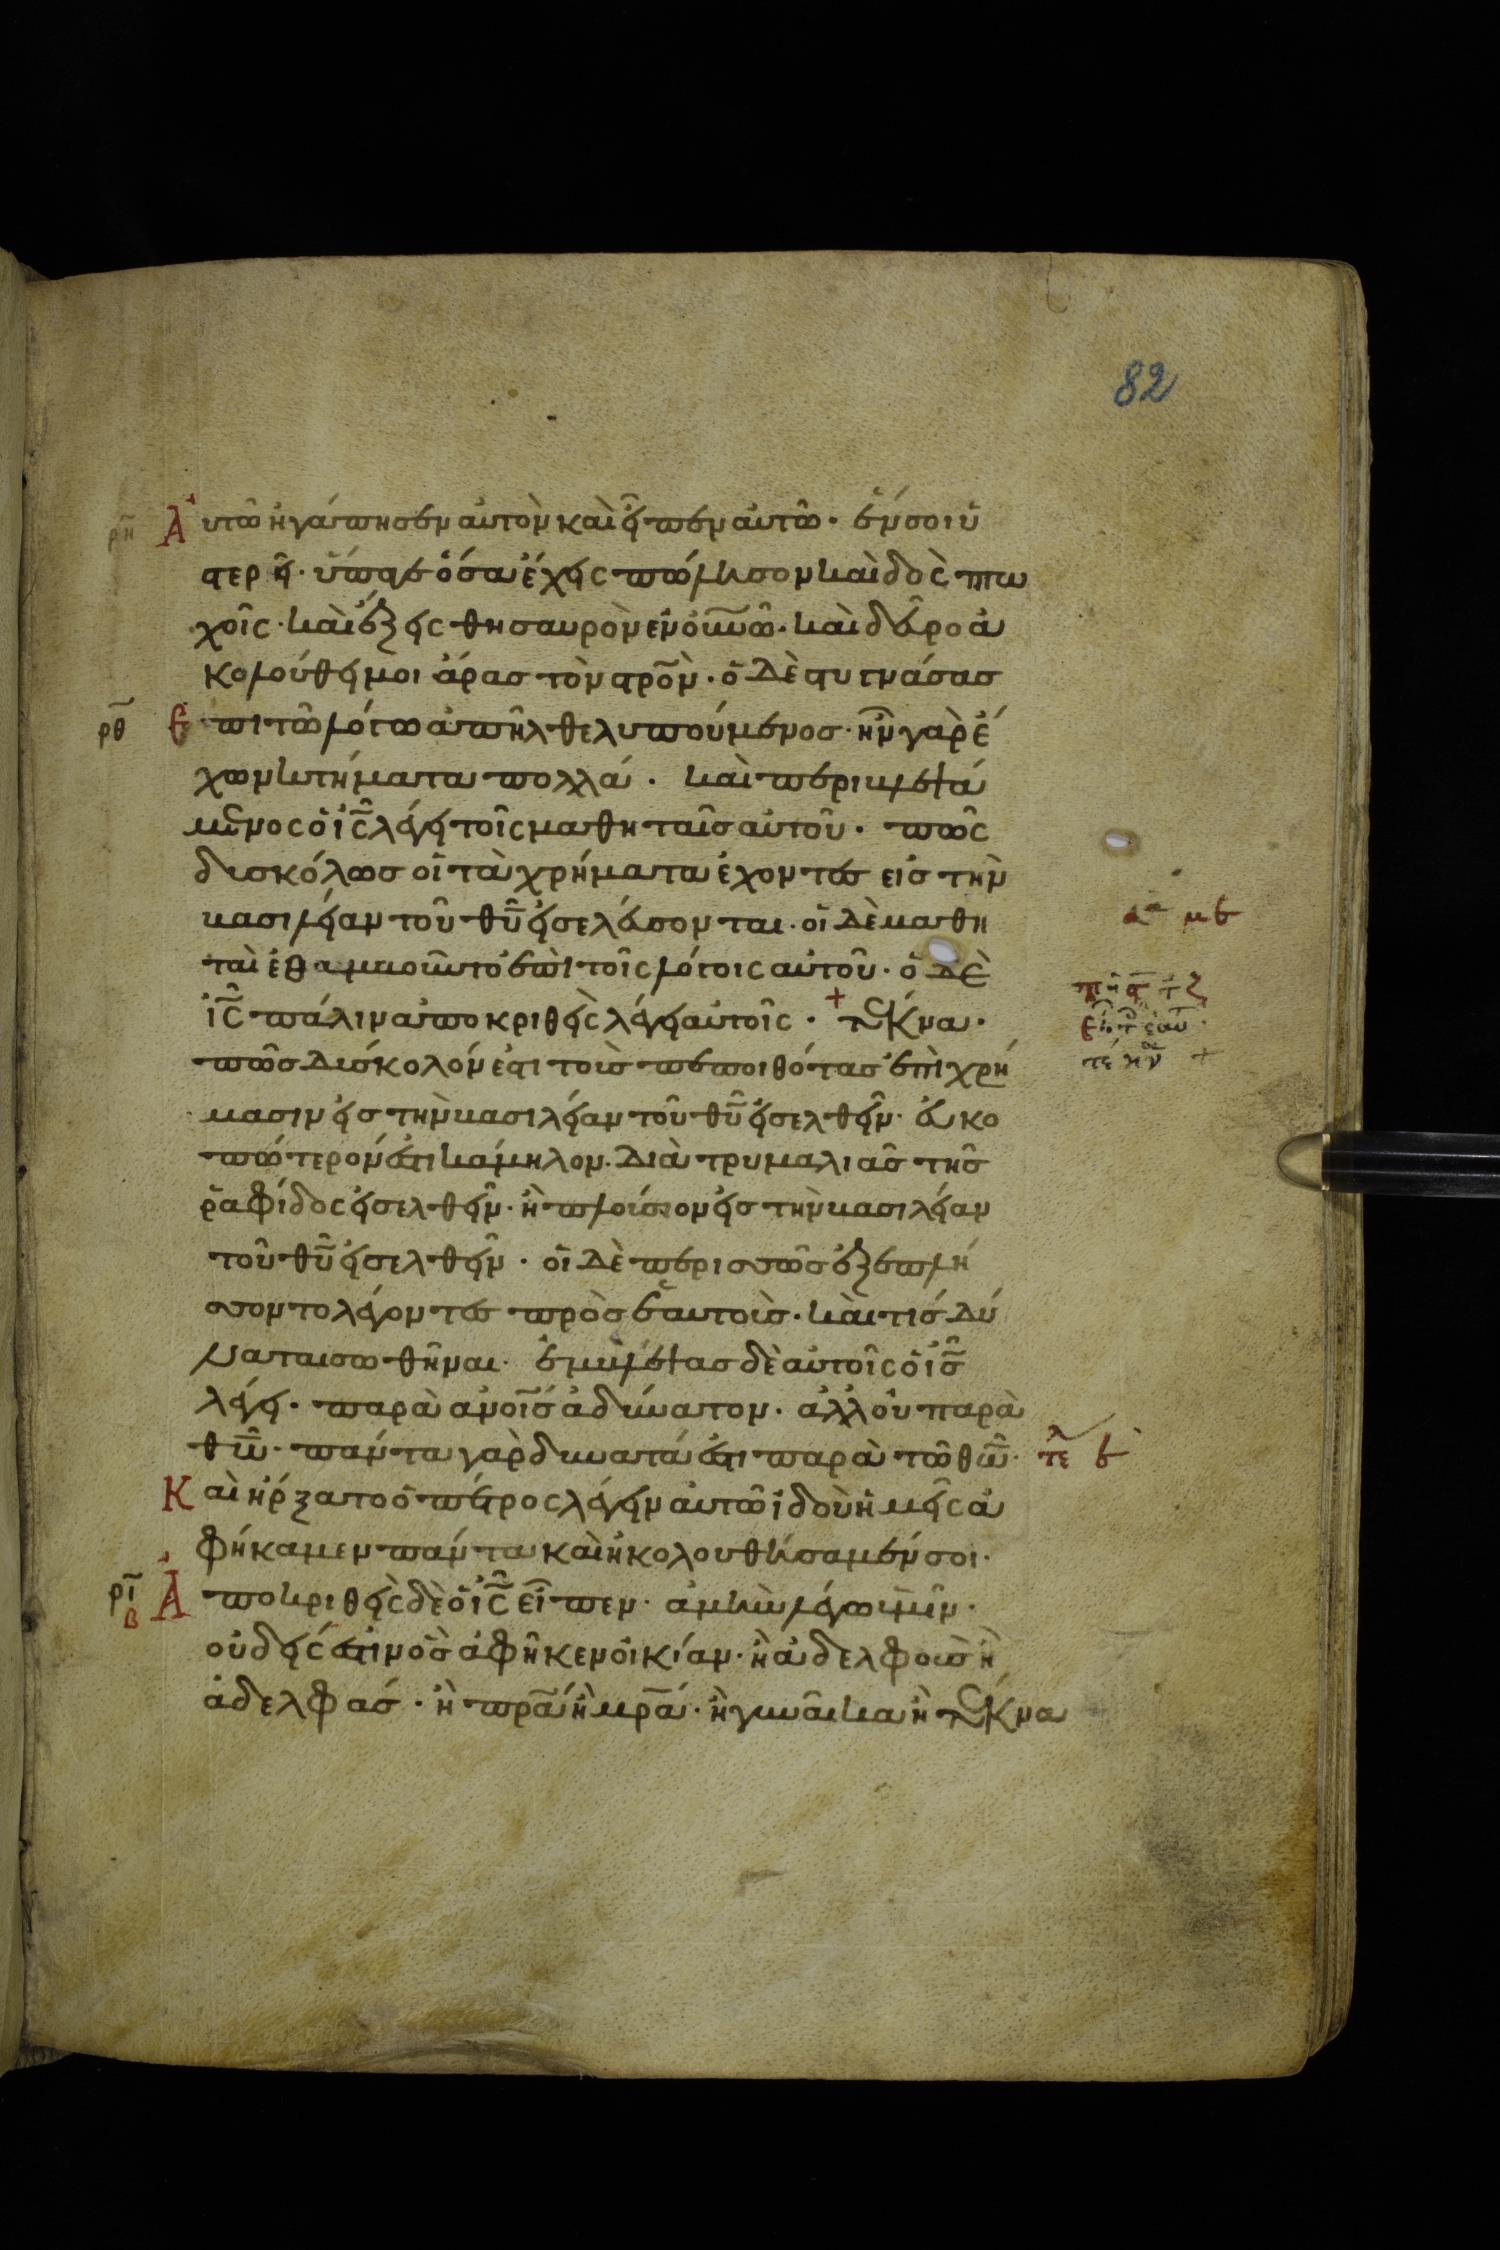 82
ρη Αὐτῶ ἠγάπησεν αὐτὸν καὶ εἶπεν αὐτῶ· ἕν σοι ὑ
στερεῖ· ὕπαγε ὅσα ἔχεις πώλησον καὶ δὸς πτω
χοῖς· καὶ ἕξεις θησαυρὸν ἐν οὐνῶ· καὶ δεῦρο ἀ
κολούθει μοι ἄρας τὸν στρον· ὁ δὲ στυγνάσας
ρθ ἐπὶ τῶ λόγω ἀπῆλθε λυπούμενος· ἦν γὰρ ἔ
χων κτήματα πολλά· καὶ περιβλεψά
μενος ὁ ις λέγει τοῖς μαθηταῖς αὐτοῦ· πῶς
δυσκόλως οἱ τὰ χρήματα ἔχοντες εἰς τὴν
βασιλείαν τοῦ θυ εἰσελεύσονται· οἱ δὲ μαθη
ταὶ ἐθαμβοῦντο ἐπὶ τοῖς λόγοις αὐτοῦ· ὁ δὲ
ις πάλιν ἀποκριθεὶς λέγει αὐτοῖς· + τέκνα·
πῶς δύσκολόν ἐστι τοὺς πεποιθότας ἐπὶ χρή
μασιν εἰς τὴν βασιλείαν τοῦ θυ εἰσελθεῖν· εὐκο
πώτερόν ἐστι κάμηλον· διὰ τρυμαλιᾶς τῆς
ῥαφίδος εἰσελθεῖν· ἢ πλούσιον εἰς τὴν βασιλείαν
τοῦ θυ εἰσελθεῖν· οἱ δὲ περισσῶς ἐξεπλή
σσοντο λέγοντες πρὸς ἑαυτούς· καὶ τίς δύ
ναται σωθῆναι· ἐμβλέψας δὲ αὐτοῖς ὁ ις
λέγει· παρὰ ανοις ἀδύνατον· ἀλλ' οὐ παρὰ
θω· πάντα γὰρ δυνατά ἐστι παρὰ τῶ θω· τε β
Καὶ ἤρξατο ὁ πέτρος λέγειν αὐτῶ ἰδοὺ ἡμεῖς ἀ
φήκαμεν πάντα καὶ ἠκολουθήσαμέν σοι·
ρι β Ἀποκριθεὶς δὲ ὁ ις εἶπεν· ἀμὴν λέγω ὑμῖν·
οὐδείς ἐστιν ὃς ἀφῆκεν οἰκίαν· ἢ ἀδελφοὺς ἢ
ἀδελφάς· ἢ πρα ἢ μρα· ἢ γυναῖκα ἢ τέκνα